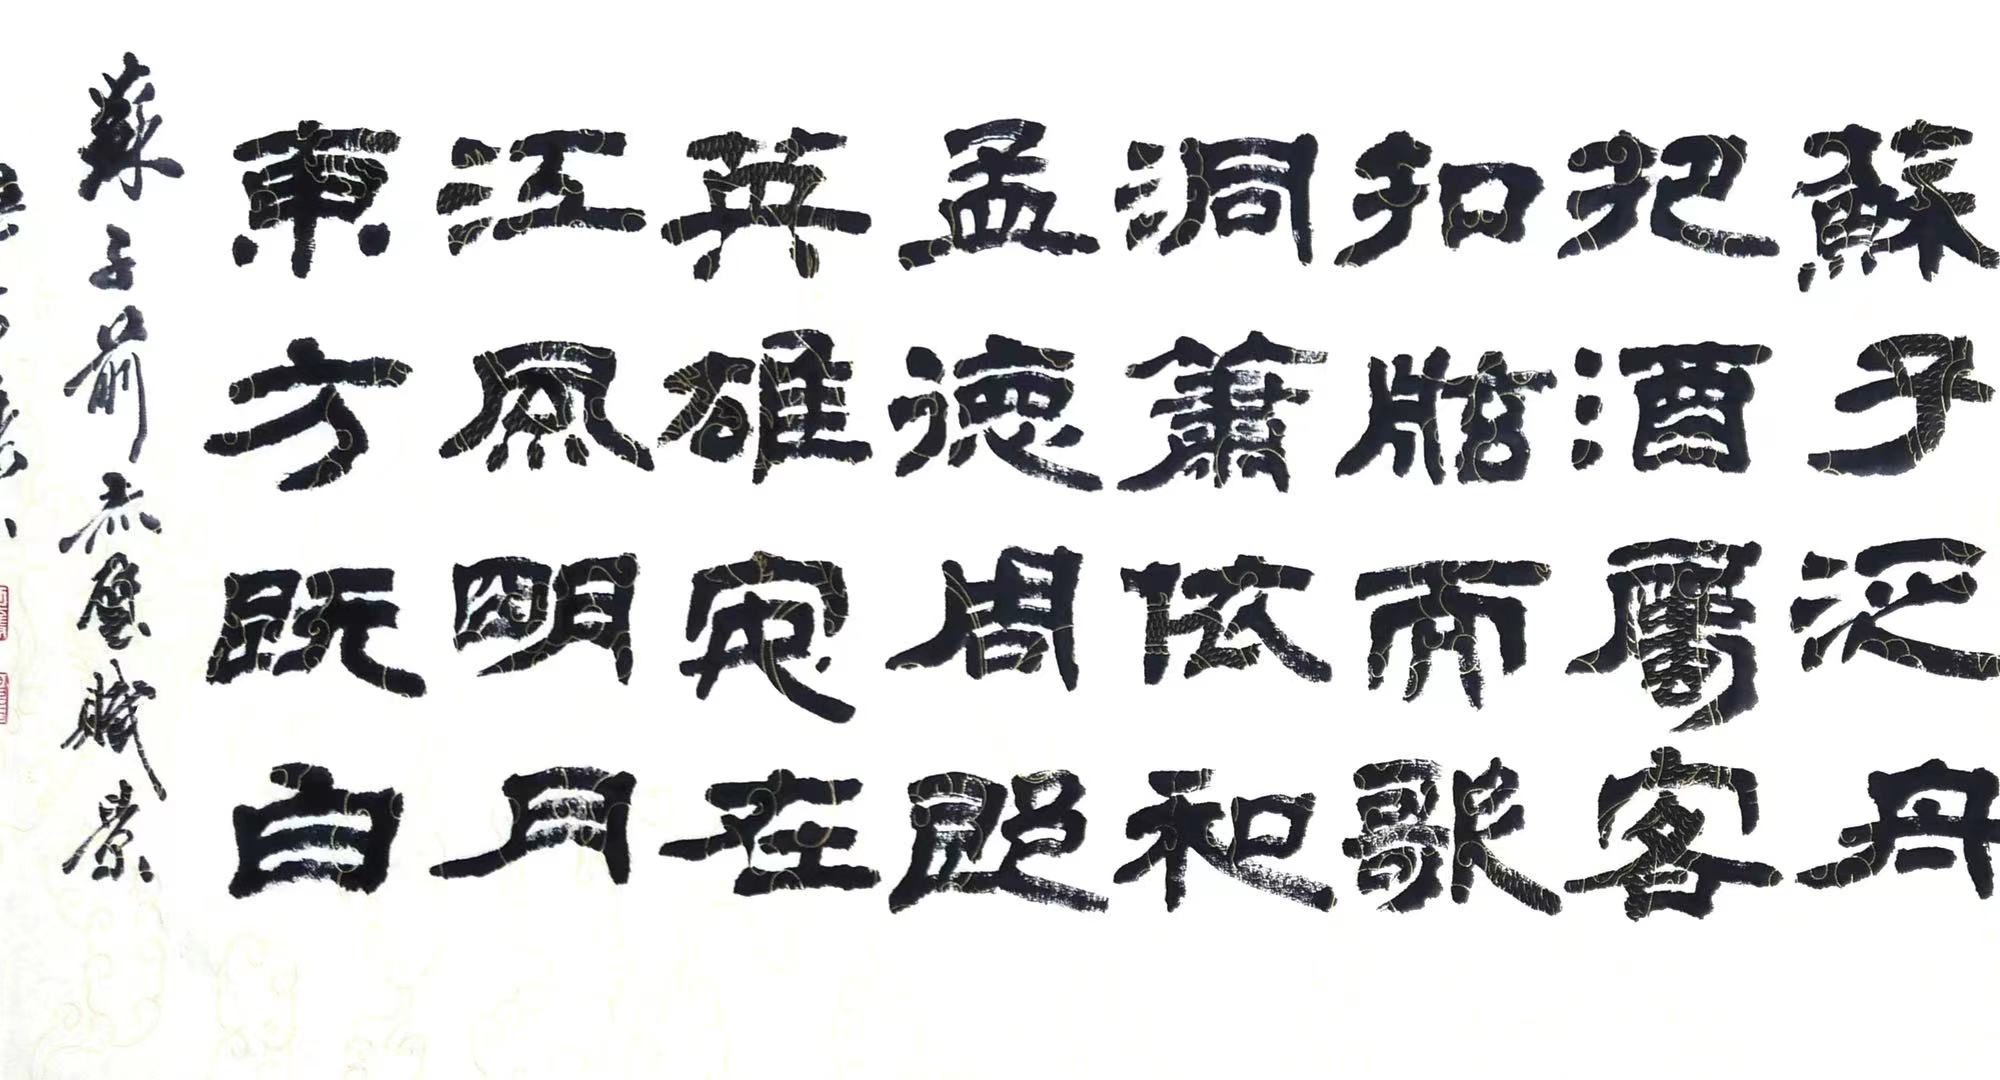 蘇子泛舟
把酒屬客
扣舷而歌
洞簫依和
孟德周郎
英雄安在
江風明月
東方既白
蘇子前赤壁賦景